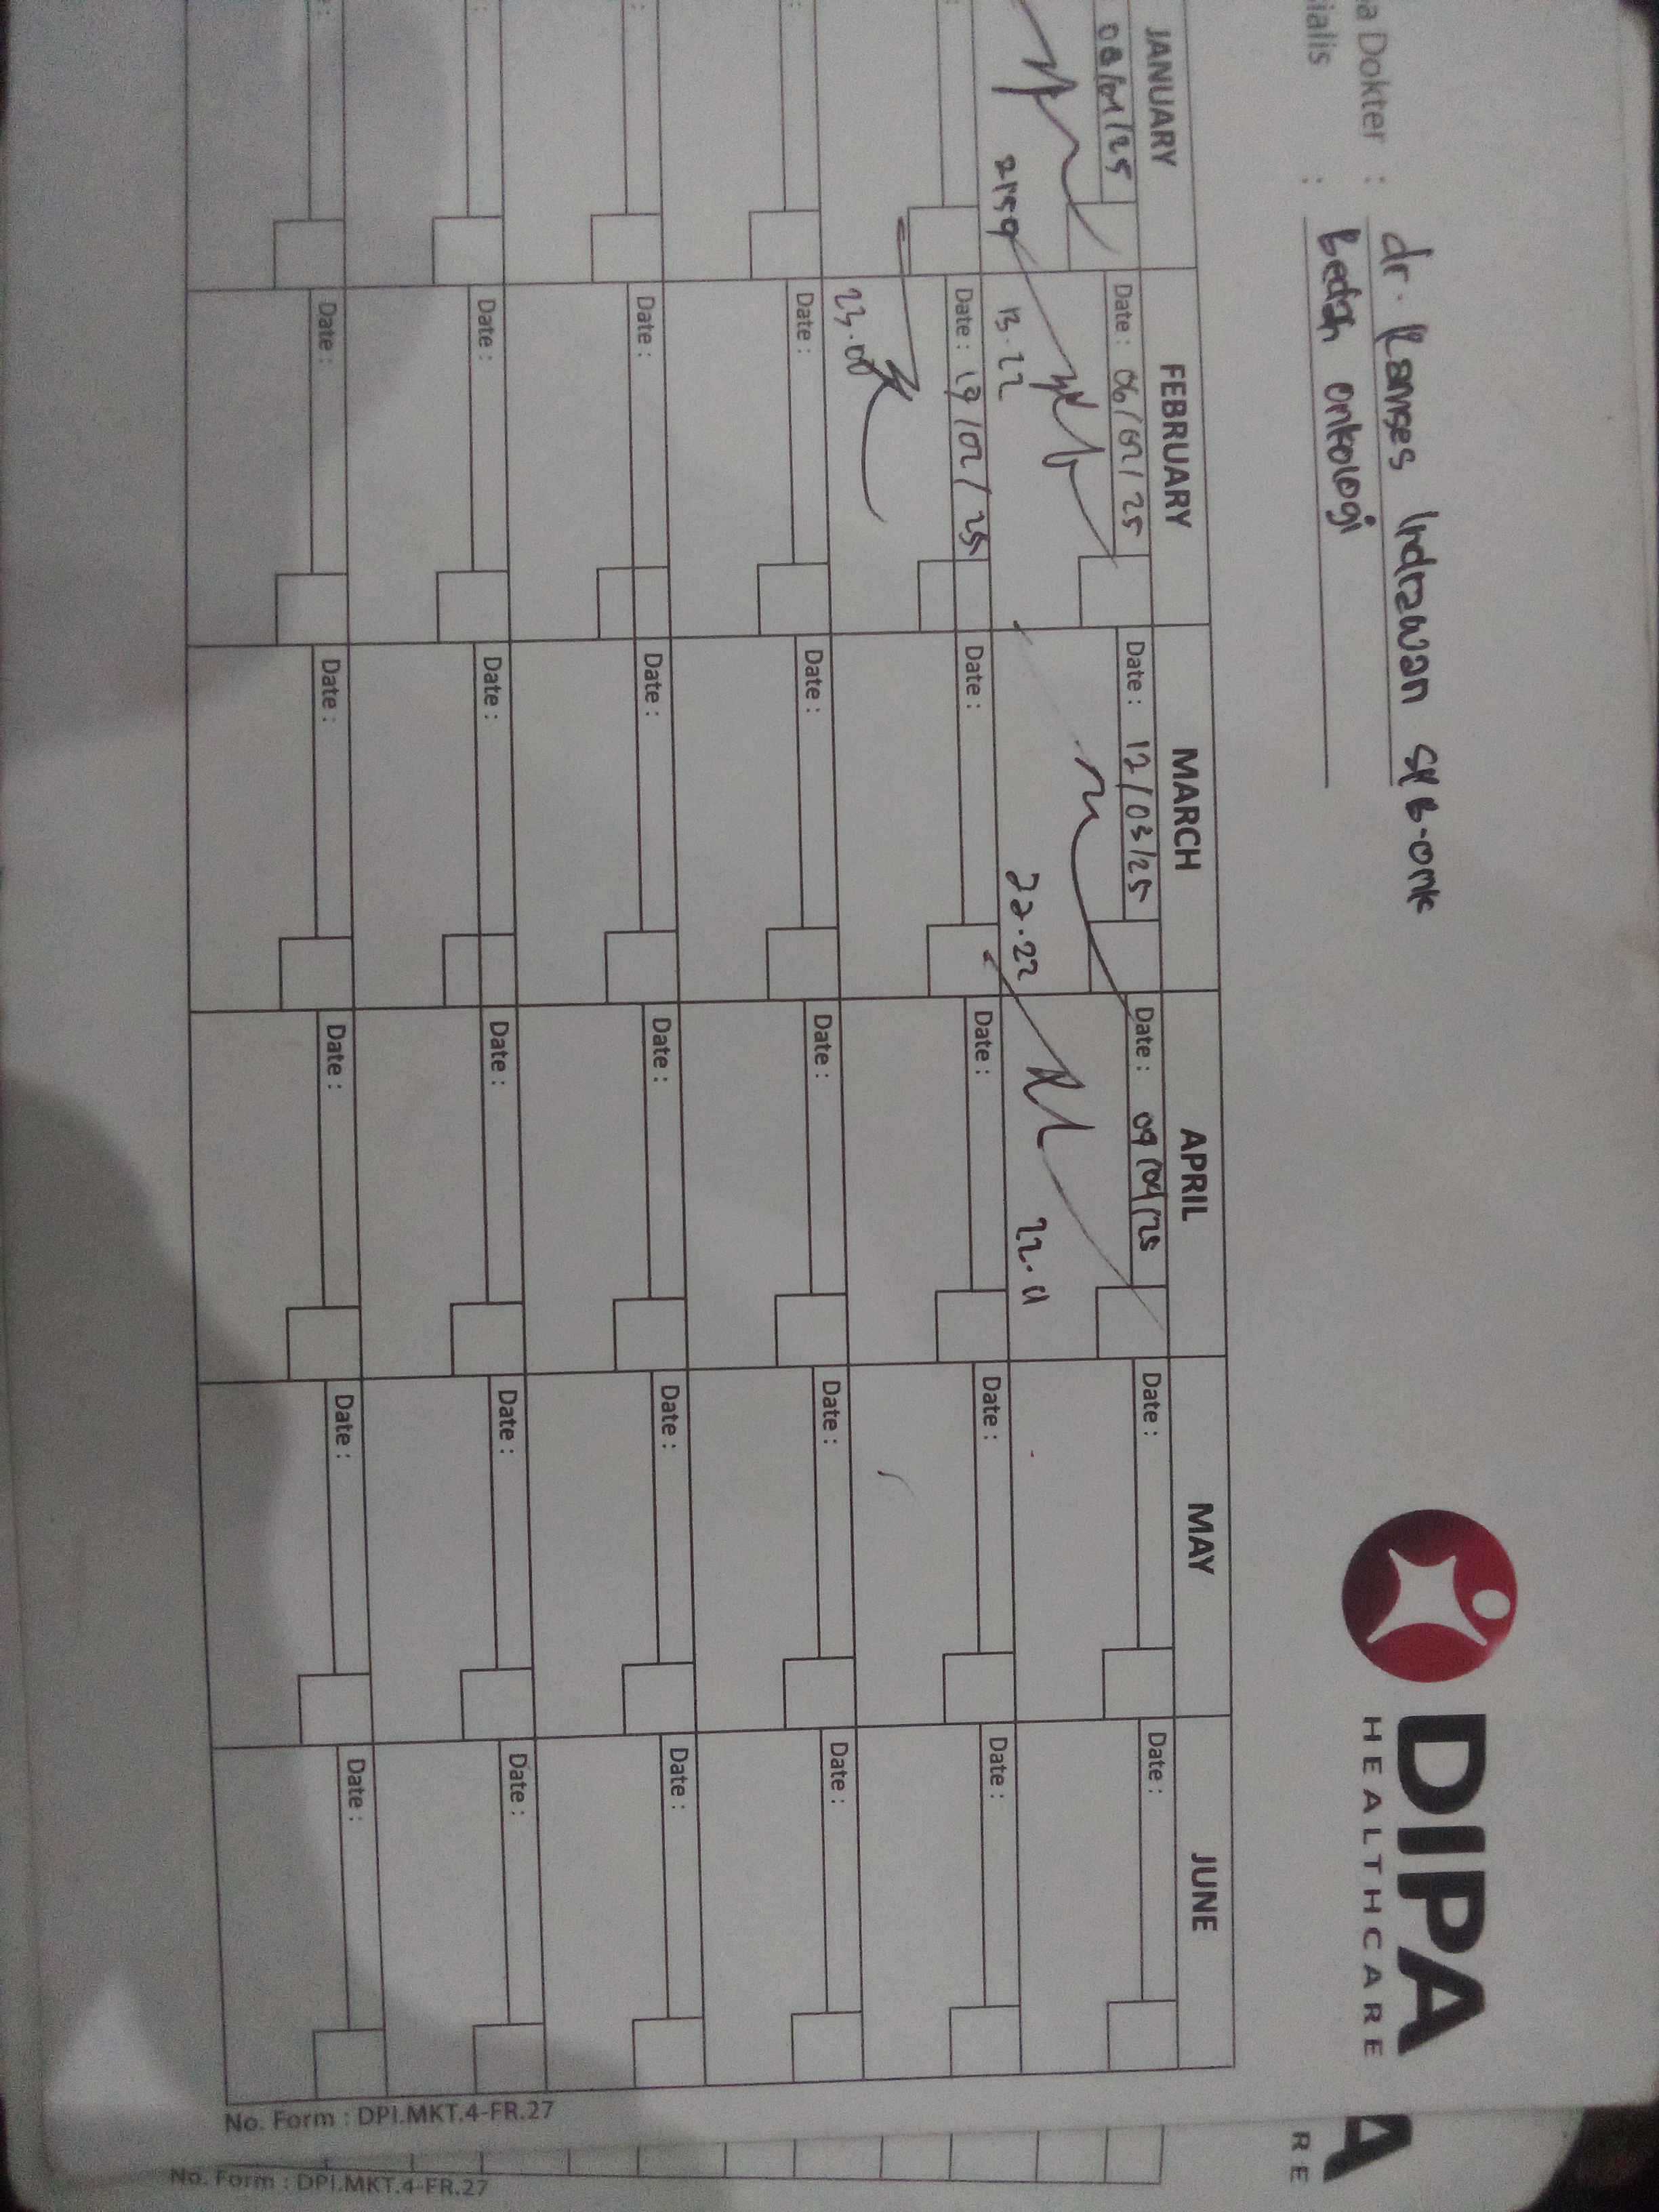 a Dokter : dr. Ramses Indrawan SpB-onk
ialis : Bedah onkologi
DIPA
HEALTHCARE
JANUARY FEBRUARY MARCH APRIL MAY JUNE
08/01/25 Date : 06/02/25 Date : 12/03/25 Date : 09/04/25 Date : Date :
2159 13.22 22.22 22.11
: Date : 19/02/25 Date : Date : Date : Date :
23.08
: Date : Date : Date : Date : Date :
: Date : Date : Date : Date : Date :
: Date : Date : Date : Date : Date :
: Date : Date : Date : Date : Date :
No. Form : DPI.MKT.4-FR.27
A
RE
No. Form : DPI.MKT.4-FR.27